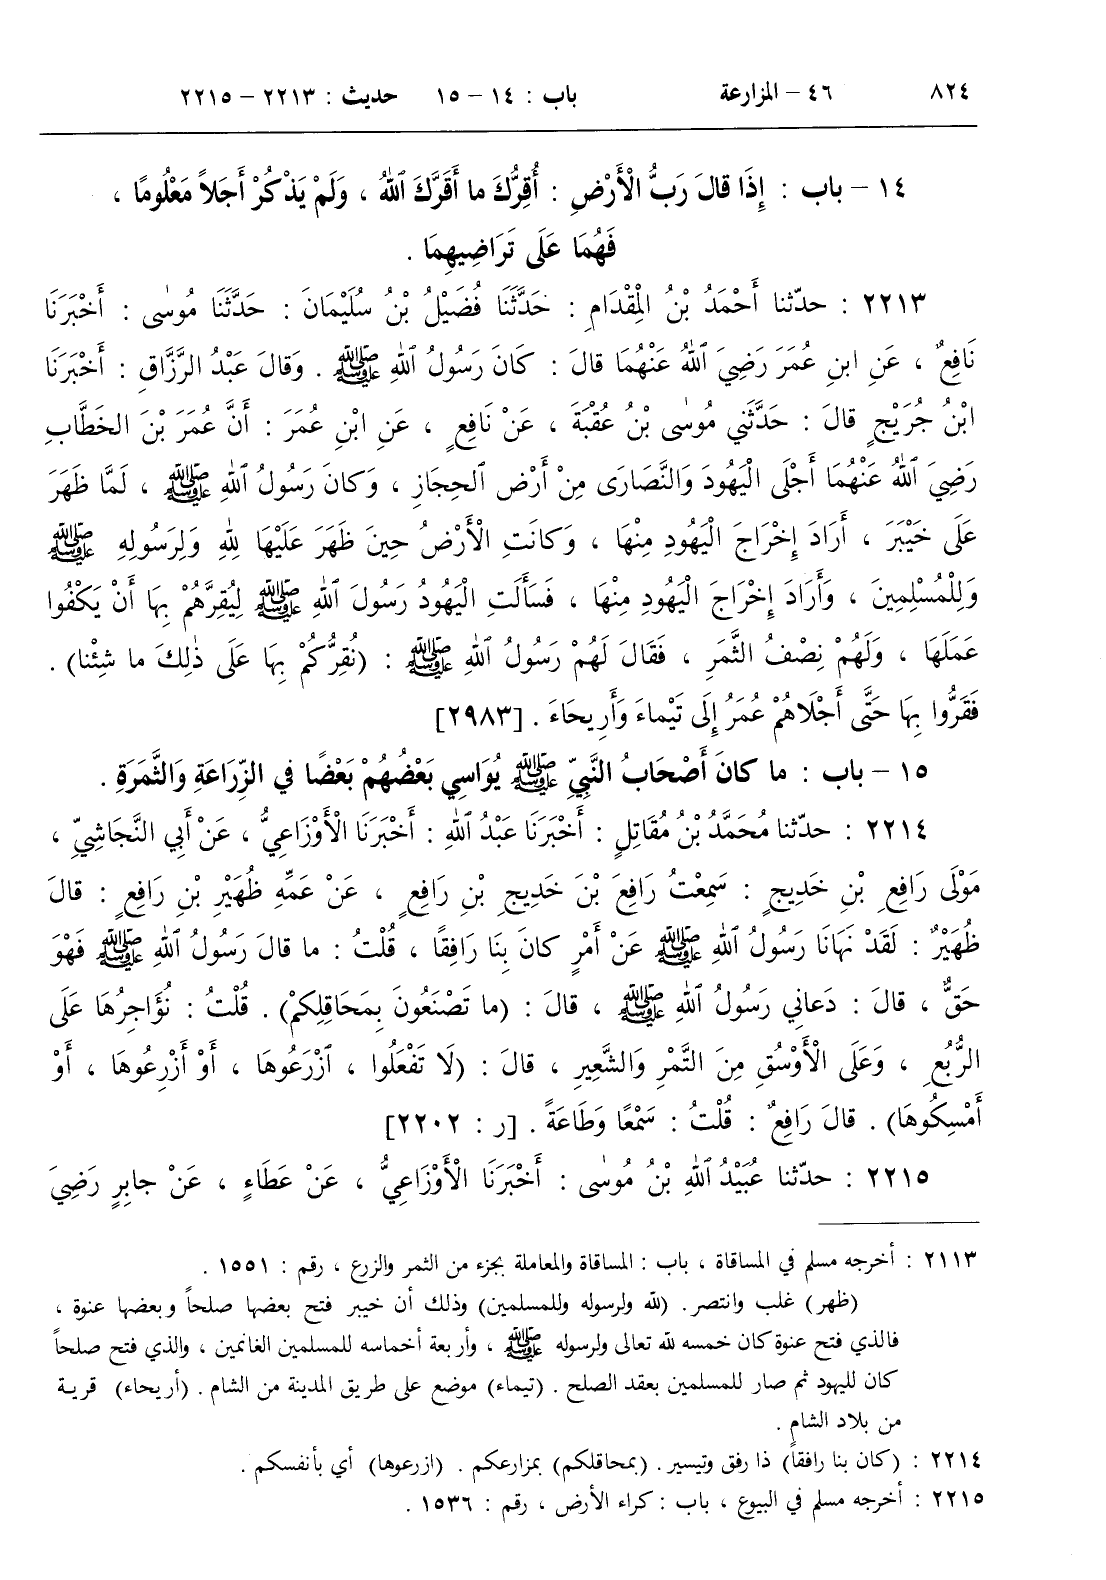 ٨٢٤ ٤٦ – المزارعة باب : ١٤ – ١٥ حديث : ٢٢١٣ – ٢٢١٥
١٤ – باب : إِذَا قالَ رَبُّ الْأَرْضِ : أُقِرُّكَ ما أَقَرَّكَ ٱللهُ ، وَلَمْ يَذْكُرْ أَجَلاً مَعْلُومًا ،
فَهُمَا عَلَى تَرَاضِيهِمَا .
٢٢١٣ : حدّثنا أَحْمَدُ بْنُ الْمِقْدَامِ : حَدَّثَنَا فُضَيْلُ بْنُ سُلَيْمَانَ : حَدَّثَنَا مُوسٰى : أَخْبَرَنَا
نَافِعٌ ، عَنِ ابنِ عُمَرَ رَضِيَ ٱللهُ عَنْهُمَا قالَ : كَانَ رَسُولُ ٱللهِ ﷺ . وَقالَ عَبْدُ الرَّزَّاقِ : أَخْبَرَنَا
ابْنُ جُرَيْجٍ قالَ : حَدَّثَنِي مُوسٰى بْنُ عُقْبَةَ ، عَنْ نَافِعٍ ، عَنِ ابْنِ عُمَرَ : أَنَّ عُمَرَ بْنَ الخَطَّابِ
رَضِيَ ٱللهُ عَنْهُمَا أَجْلَى الْيَهُودَ وَالنَّصَارَى مِنْ أَرْضِ ٱلحِجَازِ ، وَكانَ رَسُولُ ٱللهِ ﷺ ، لَمَّا ظَهَرَ
عَلَى خَيْبَرَ ، أَرَادَ إِخْرَاجَ الْيَهُودِ مِنْهَا ، وَكانَتِ الْأَرْضُ حِينَ ظَهَرَ عَلَيْهَا لِلهِ وَلِرَسُولِهِ ﷺ
وَلِلْمُسْلِمِينَ ، وَأَرَادَ إِخْرَاجَ الْيَهُودِ مِنْهَا ، فَسَأَلَتِ الْيَهُودُ رَسُولَ ٱللهِ ﷺ لِيُقِرَّهُمْ بِهَا أَنْ يَكْفُوا
عَمَلَهَا ، وَلَهُمْ نِصْفُ الثَّمَرِ ، فَقَالَ لَهُمْ رَسُولُ ٱللهِ ﷺ : (نُقِرُّكُمْ بِهَا عَلَى ذٰلِكَ ما شِئْنا) .
فَقَرُّوا بِهَا حَتَّى أَجْلَاهُمْ عُمَرُ إِلَى تَيْماءَ وَأَرِيحَاءَ . [٢٩٨٣]
١٥ – باب : ما كانَ أَصْحَابُ النَّبِيِّ ﷺ يُوَاسِي بَعْضُهُمْ بَعْضًا في الزِّرَاعَةِ وَالثَّمَرَةِ .
٢٢١٤ : حدّثنا مُحَمَّدُ بْنُ مُقَاتِلٍ : أَخْبَرَنَا عَبْدُ اللهِ : أَخْبَرَنَا الْأَوْزَاعِيُّ ، عَنْ أَبِي النَّجَاشِيِّ ،
مَوْلَى رَافِعِ بْنِ خَدِيجٍ : سَمِعْتُ رَافِعَ بْنَ خَدِيجِ بْنِ رَافِعٍ ، عَنْ عَمِّهِ ظُهَيْرِ بْنِ رَافِعٍ : قالَ
ظُهَيْرٌ : لَقَدْ نَهَانَا رَسُولُ ٱللهِ ﷺ عَنْ أَمْرٍ كانَ بِنَا رَافِقًا ، قُلْتُ : ما قالَ رَسُولُ ٱللهِ ﷺ فَهْوَ
حَقٌّ ، قالَ : دَعانِي رَسُولُ ٱللهِ ﷺ ، قالَ : (ما تَصْنَعُونَ بِمَحَاقِلِكمْ) . قُلْتُ : نُؤَاجِرُهَا عَلَى
الرُّبُعِ ، وَعَلَى الْأَوْسُقِ مِنَ التَّمْرِ وَالشَّعِيرِ ، قالَ : (لَا تَفْعَلُوا ، ٱزْرَعُوهَا ، أَوْ أَزْرِعُوهَا ، أَوْ
أَمْسِكُوهَا) . قالَ رَافِعٌ : قُلْتُ : سَمْعًا وَطَاعَةً . [ر : ٢٢٠٢]
٢٢١٥ : حدّثنا عُبَيْدُ اللهِ بْنُ مُوسٰى : أَخْبَرَنَا الْأَوْزَاعِيُّ ، عَنْ عَطَاءٍ ، عَنْ جابِرٍ رَضِيَ
٢١١٣ : أخرجه مسلم في المساقاة ، باب : المساقاة والمعاملة بجزء من الثمر والزرع ، رقم : ١٥٥١ .
(ظهر) غلب وانتصر . (لله ولرسوله وللمسلمين) وذلك أن خيبر فتح بعضها صلحاً وبعضها عنوة ،
فالذي فتح عنوة كان خمسه لله تعالى ولرسوله ﷺ ، وأربعة أخماسه للمسلمين الغانمين ، والذي فتح صلحاً
كان لليهود ثم صار للمسلمين بعقد الصلح . (تيماء) موضع على طريق المدينة من الشام . (أريحاء) قرية
من بلاد الشام .
٢٢١٤ : (كان بنا رافقاً) ذا رفق وتيسير . (بمحاقلكم) بمزارعكم . (ازرعوها) أي بأنفسكم .
٢٢١٥ : أخرجه مسلم في البيوع ، باب : كراء الأرض ، رقم : ١٥٣٦ .